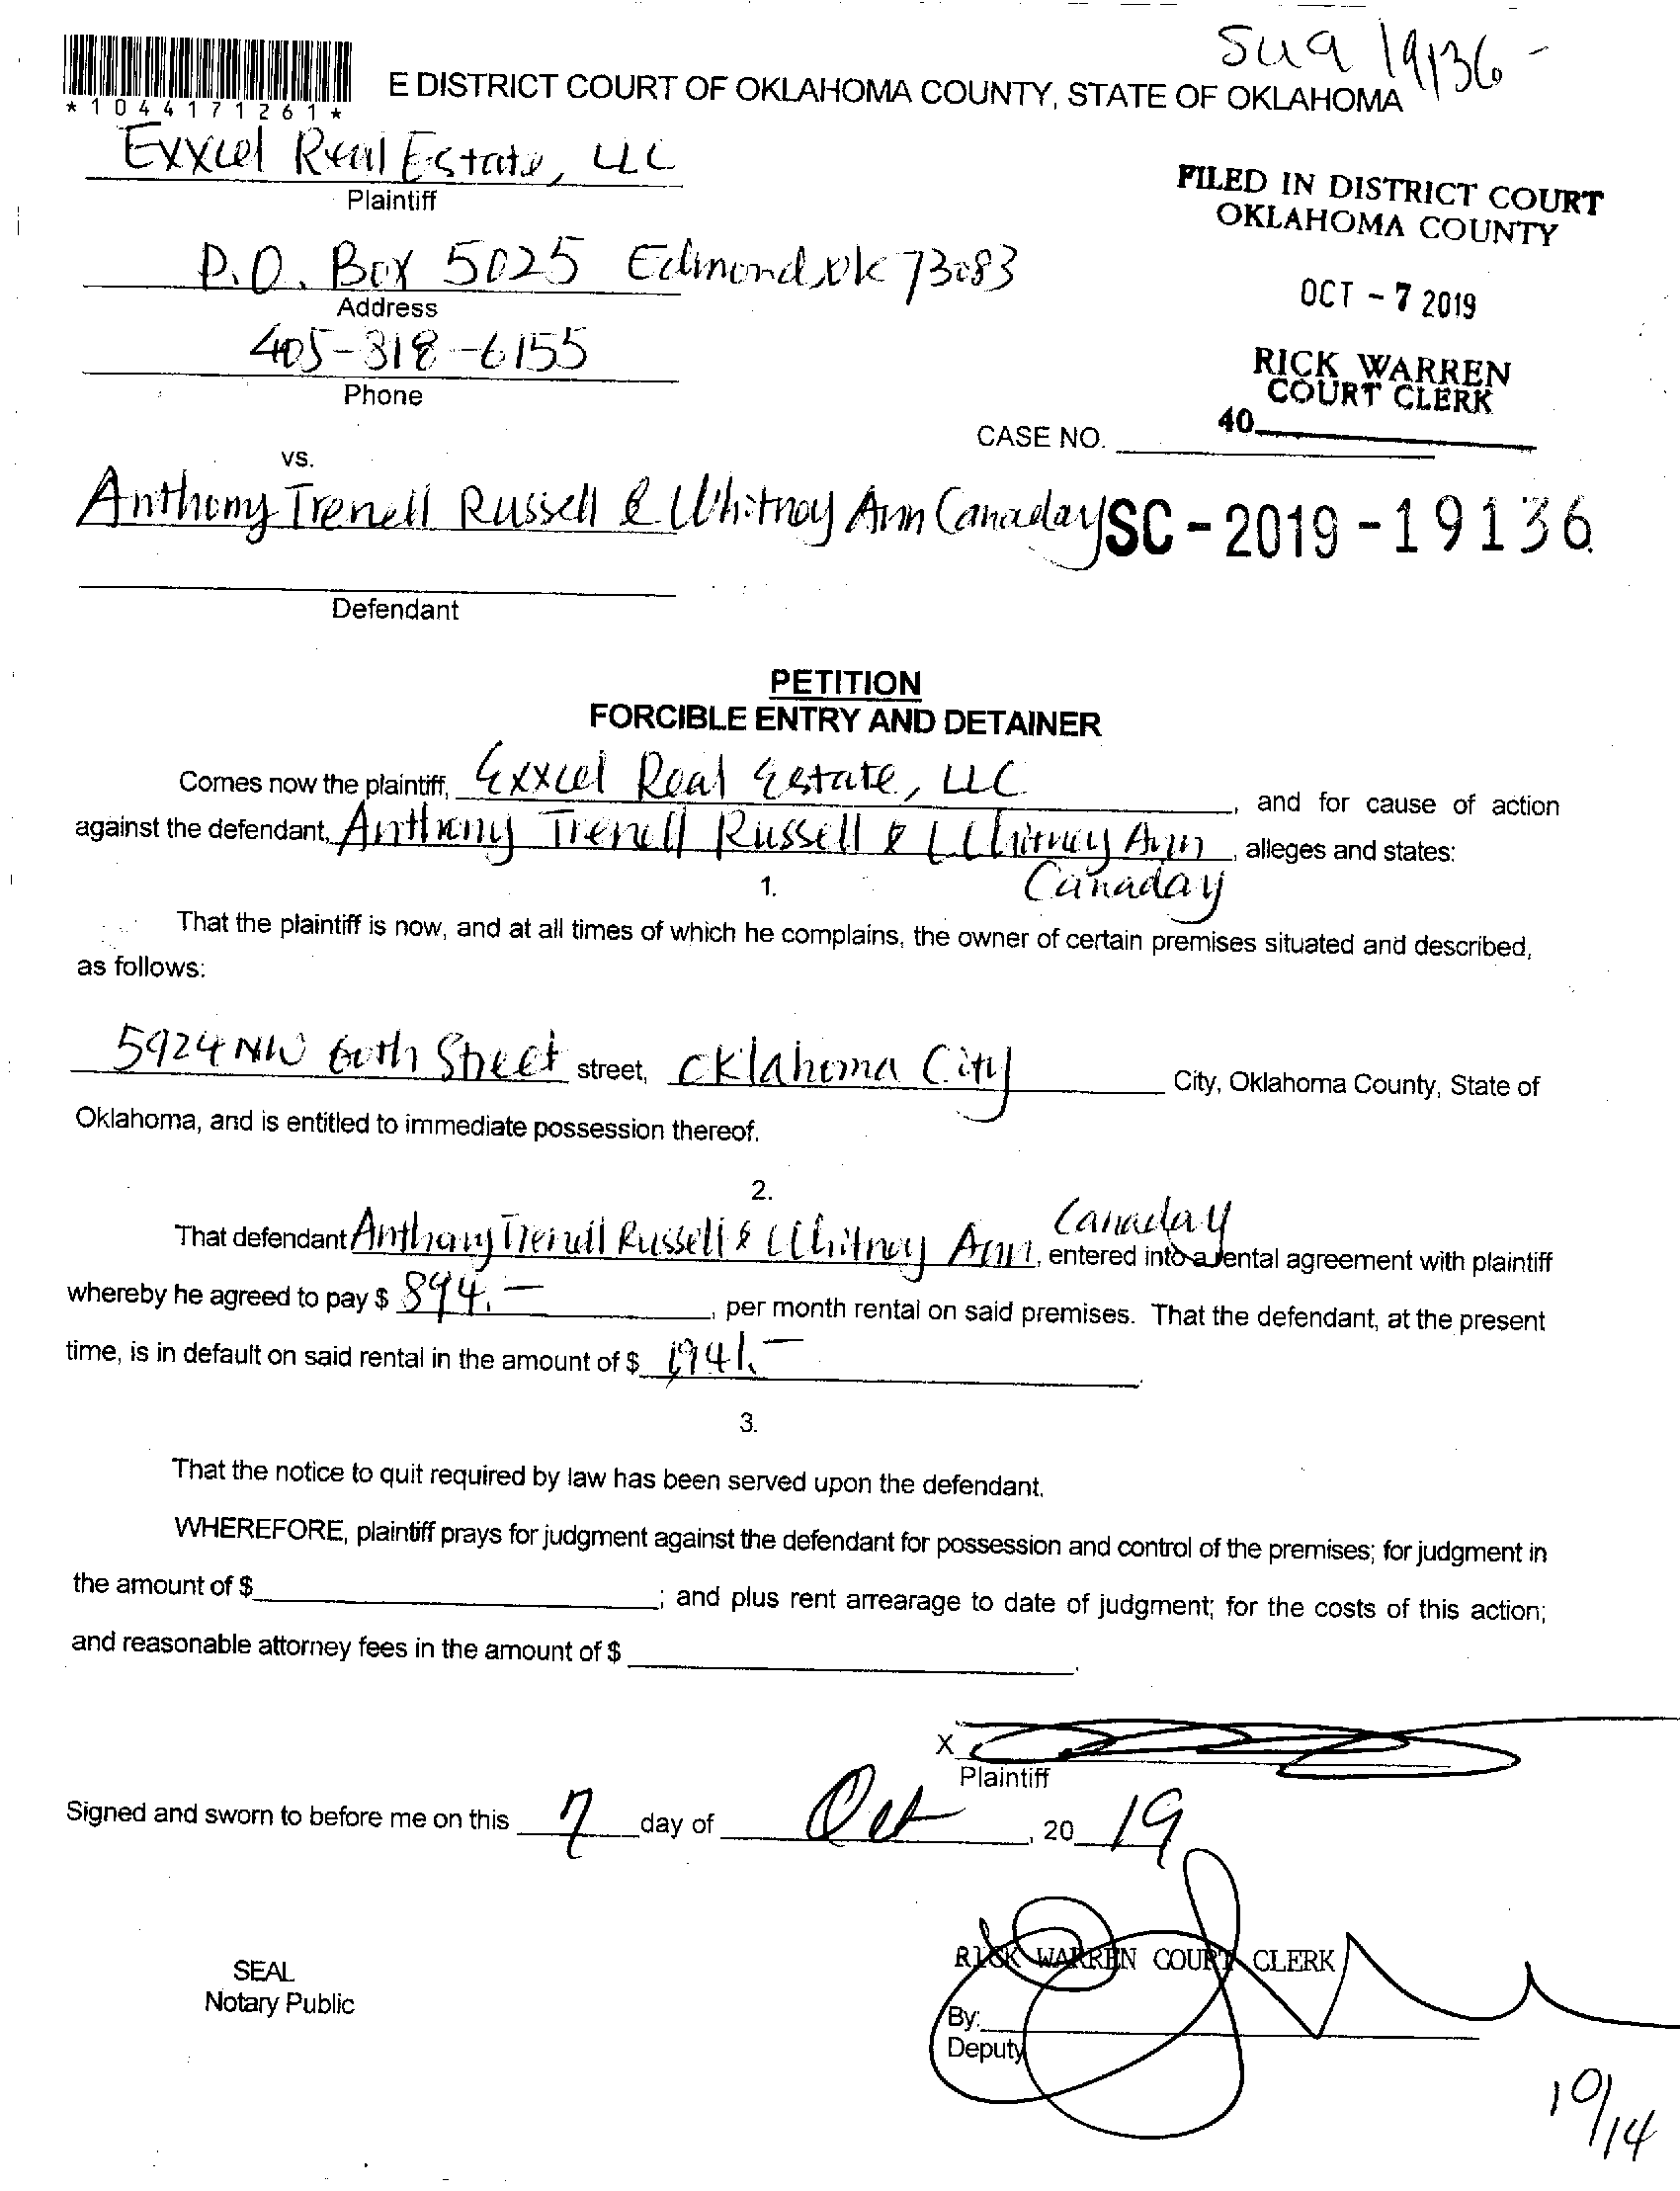 Suq 19136 -
E DISTRICT COURT OF OKLAHOMA COUNTY, STATE OF OKLAHOMA
*1044171261*
Exxcel Real Estate, LLC
Plaintiff
FILED IN DISTRICT COURT
OKLAHOMA COUNTY
P.O. Box 5025 Edmond, OK 73083
Address
OCT - 7 2019
405-318-6155
Phone
RICK WARREN
COURT CLERK
40
CASE NO.
vs.
Anthony Trenell Russell & Whitney Ann Canaday SC - 2019 - 19136
Defendant
PETITION
FORCIBLE ENTRY AND DETAINER
Comes now the plaintiff, Exxcel Real Estate, LLC, and for cause of action
against the defendant, Anthony Trenell Russell & Whitney Ann Canaday, alleges and states:
1.
That the plaintiff is now, and at all times of which he complains, the owner of certain premises situated and described,
as follows:
5924 NW 60th Street street, Oklahoma City City, Oklahoma County, State of
Oklahoma, and is entitled to immediate possession thereof.
2.
That defendant Anthony Trenell Russell & Whitney Ann Canaday, entered into a rental agreement with plaintiff
whereby he agreed to pay $ 894.-, per month rental on said premises. That the defendant, at the present
time, is in default on said rental in the amount of $ 1,941.-.
3.
That the notice to quit required by law has been served upon the defendant.
WHEREFORE, plaintiff prays for judgment against the defendant for possession and control of the premises; for judgment in
the amount of $ ; and plus rent arrearage to date of judgment; for the costs of this action;
and reasonable attorney fees in the amount of $ .
X
Plaintiff
Signed and sworn to before me on this 7 day of Oct, 20 19
RICK WARREN COURT CLERK
SEAL
Notary Public
By:
Deputy
10/14